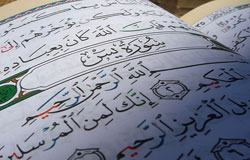 اللَّهَ كَانَ بِعِبَادِهِ
سُورَةُ يس
اللَّهِ الرَّحْمَٰنِ الرَّحِيمِ
٢ إِنَّكَ لَمِنَ الْمُرْسَلِينَ
الْعَزِيزِ الرَّحِيمِ